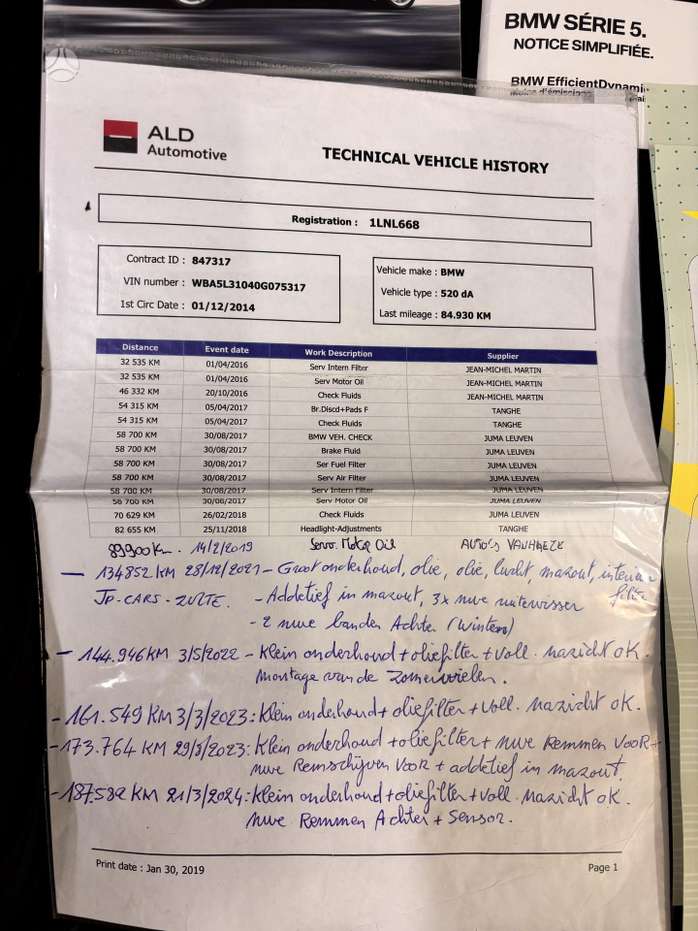 BMW SÉRIE 5.
NOTICE SIMPLIFIÉE.
BMW EfficientDynami
ALD
Automotive
TECHNICAL VEHICLE HISTORY
Registration : 1LNL668
Contract ID : 847317
VIN number : WBA5L31040G075317
1st Circ Date : 01/12/2014
Vehicle make : BMW
Vehicle type : 520 dA
Last mileage : 84.930 KM
Distance Event date Work Description Supplier
32 535 KM 01/04/2016 Serv Intern Filter JEAN-MICHEL MARTIN
32 535 KM 01/04/2016 Serv Motor Oil JEAN-MICHEL MARTIN
46 332 KM 20/10/2016 Check Fluids JEAN-MICHEL MARTIN
54 315 KM 05/04/2017 Br.Discd+Pads F TANGHE
54 315 KM 05/04/2017 Check Fluids TANGHE
58 700 KM 30/08/2017 BMW VEH. CHECK JUMA LEUVEN
58 700 KM 30/08/2017 Brake Fluid JUMA LEUVEN
58 700 KM 30/08/2017 Ser Fuel Filter JUMA LEUVEN
58 700 KM 30/08/2017 Serv Air Filter JUMA LEUVEN
58 700 KM 30/08/2017 Serv Intern Filter JUMA LEUVEN
58 700 KM 30/08/2017 Serv Motor Oil JUMA LEUVEN
70 629 KM 26/02/2018 Check Fluids JUMA LEUVEN
82 655 KM 25/11/2018 Headlight-Adjustments TANGHE
89900 Km. 14/2/2019 Serv. Motor Oil AUTO'S
- 134852 KM 28/12/2021 - Groot onderhoud, olie, olie, lucht, mazout, interieur filter
JP-CARS-ZULTE. - Addetief in mazout, 3x nwe ruitewisser
- 2 nwe banden Achter (winter)
- 144.946 KM 3/5/2022 - Klein onderhoud + oliefilter + voll. nazicht OK.
Montage van de zomerwielen.
- 161.549 KM 3/3/2023: Klein onderhoud + oliefilter + voll. nazicht OK.
- 173.764 KM 29/3/2023: Klein onderhoud + oliefilter + nwe Remmen VOOR +
nwe Remschijven VOOR + addetief in mazout.
- 187.582 KM 21/3/2024: Klein onderhoud + oliefilter + voll. nazicht OK.
nwe Remmen Achter + Sensor.
Print date : Jan 30, 2019
Page 1